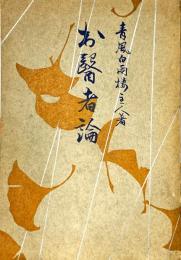 青風白雨楼主人著
お醫者論